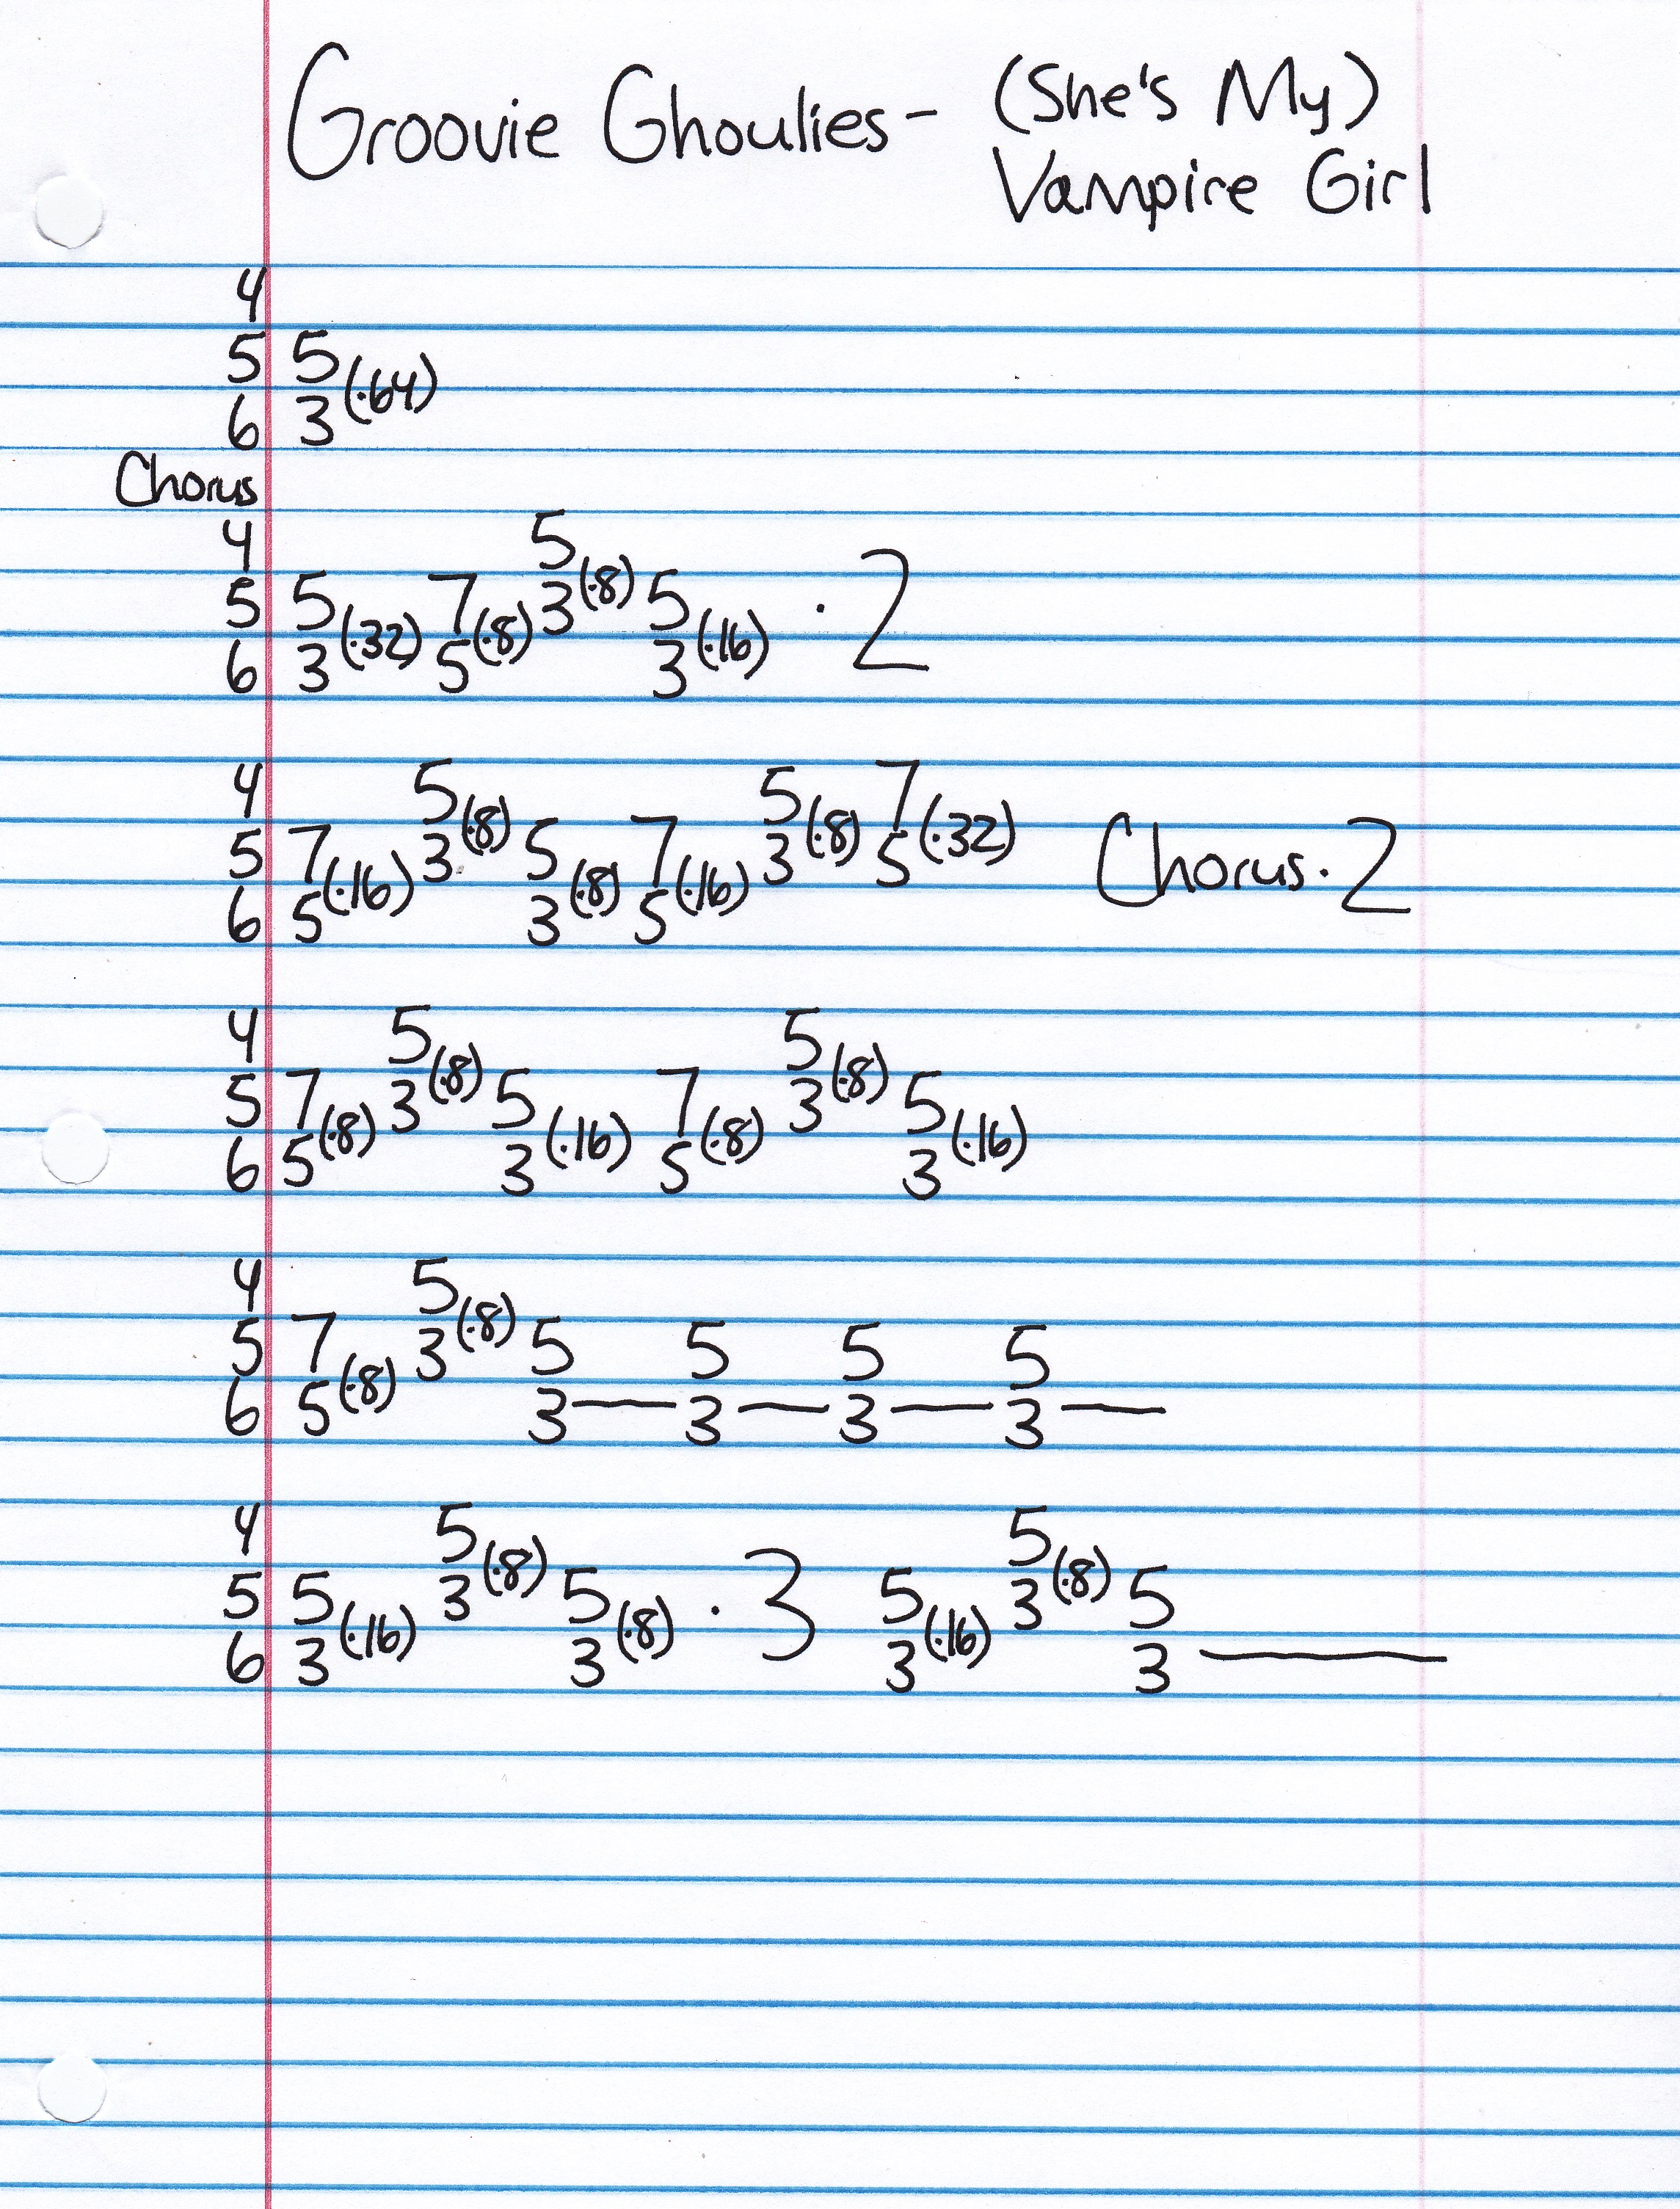 Groovie Ghoulies - (She's My)
Vampire Girl
4
5 5
6 3 (·64)
Chorus
4 5
5 5 7 3 (·8) 5
6 3 (·32) 5 (·8) 3 (·16) · 2
4 5 5 7
5 7 3 (·8) 5 7 3 (·8) 5 (·32) Chorus · 2
6 5 (·16) 3 (·8) 5 (·16)
4 5 5
5 7 3 (·8) 5 7 3 (·8) 5
6 5 (·8) 3 (·16) 5 (·8) 3 (·16)
4 5
5 7 3 (·8) 5 5 5 5
6 5 (·8) 3 — 3 — 3 — 3 —
4 5 5
5 5 3 (·8) 5 · 3 5 3 (·8) 5
6 3 (·16) 3 (·8) 3 (·16) 3 —